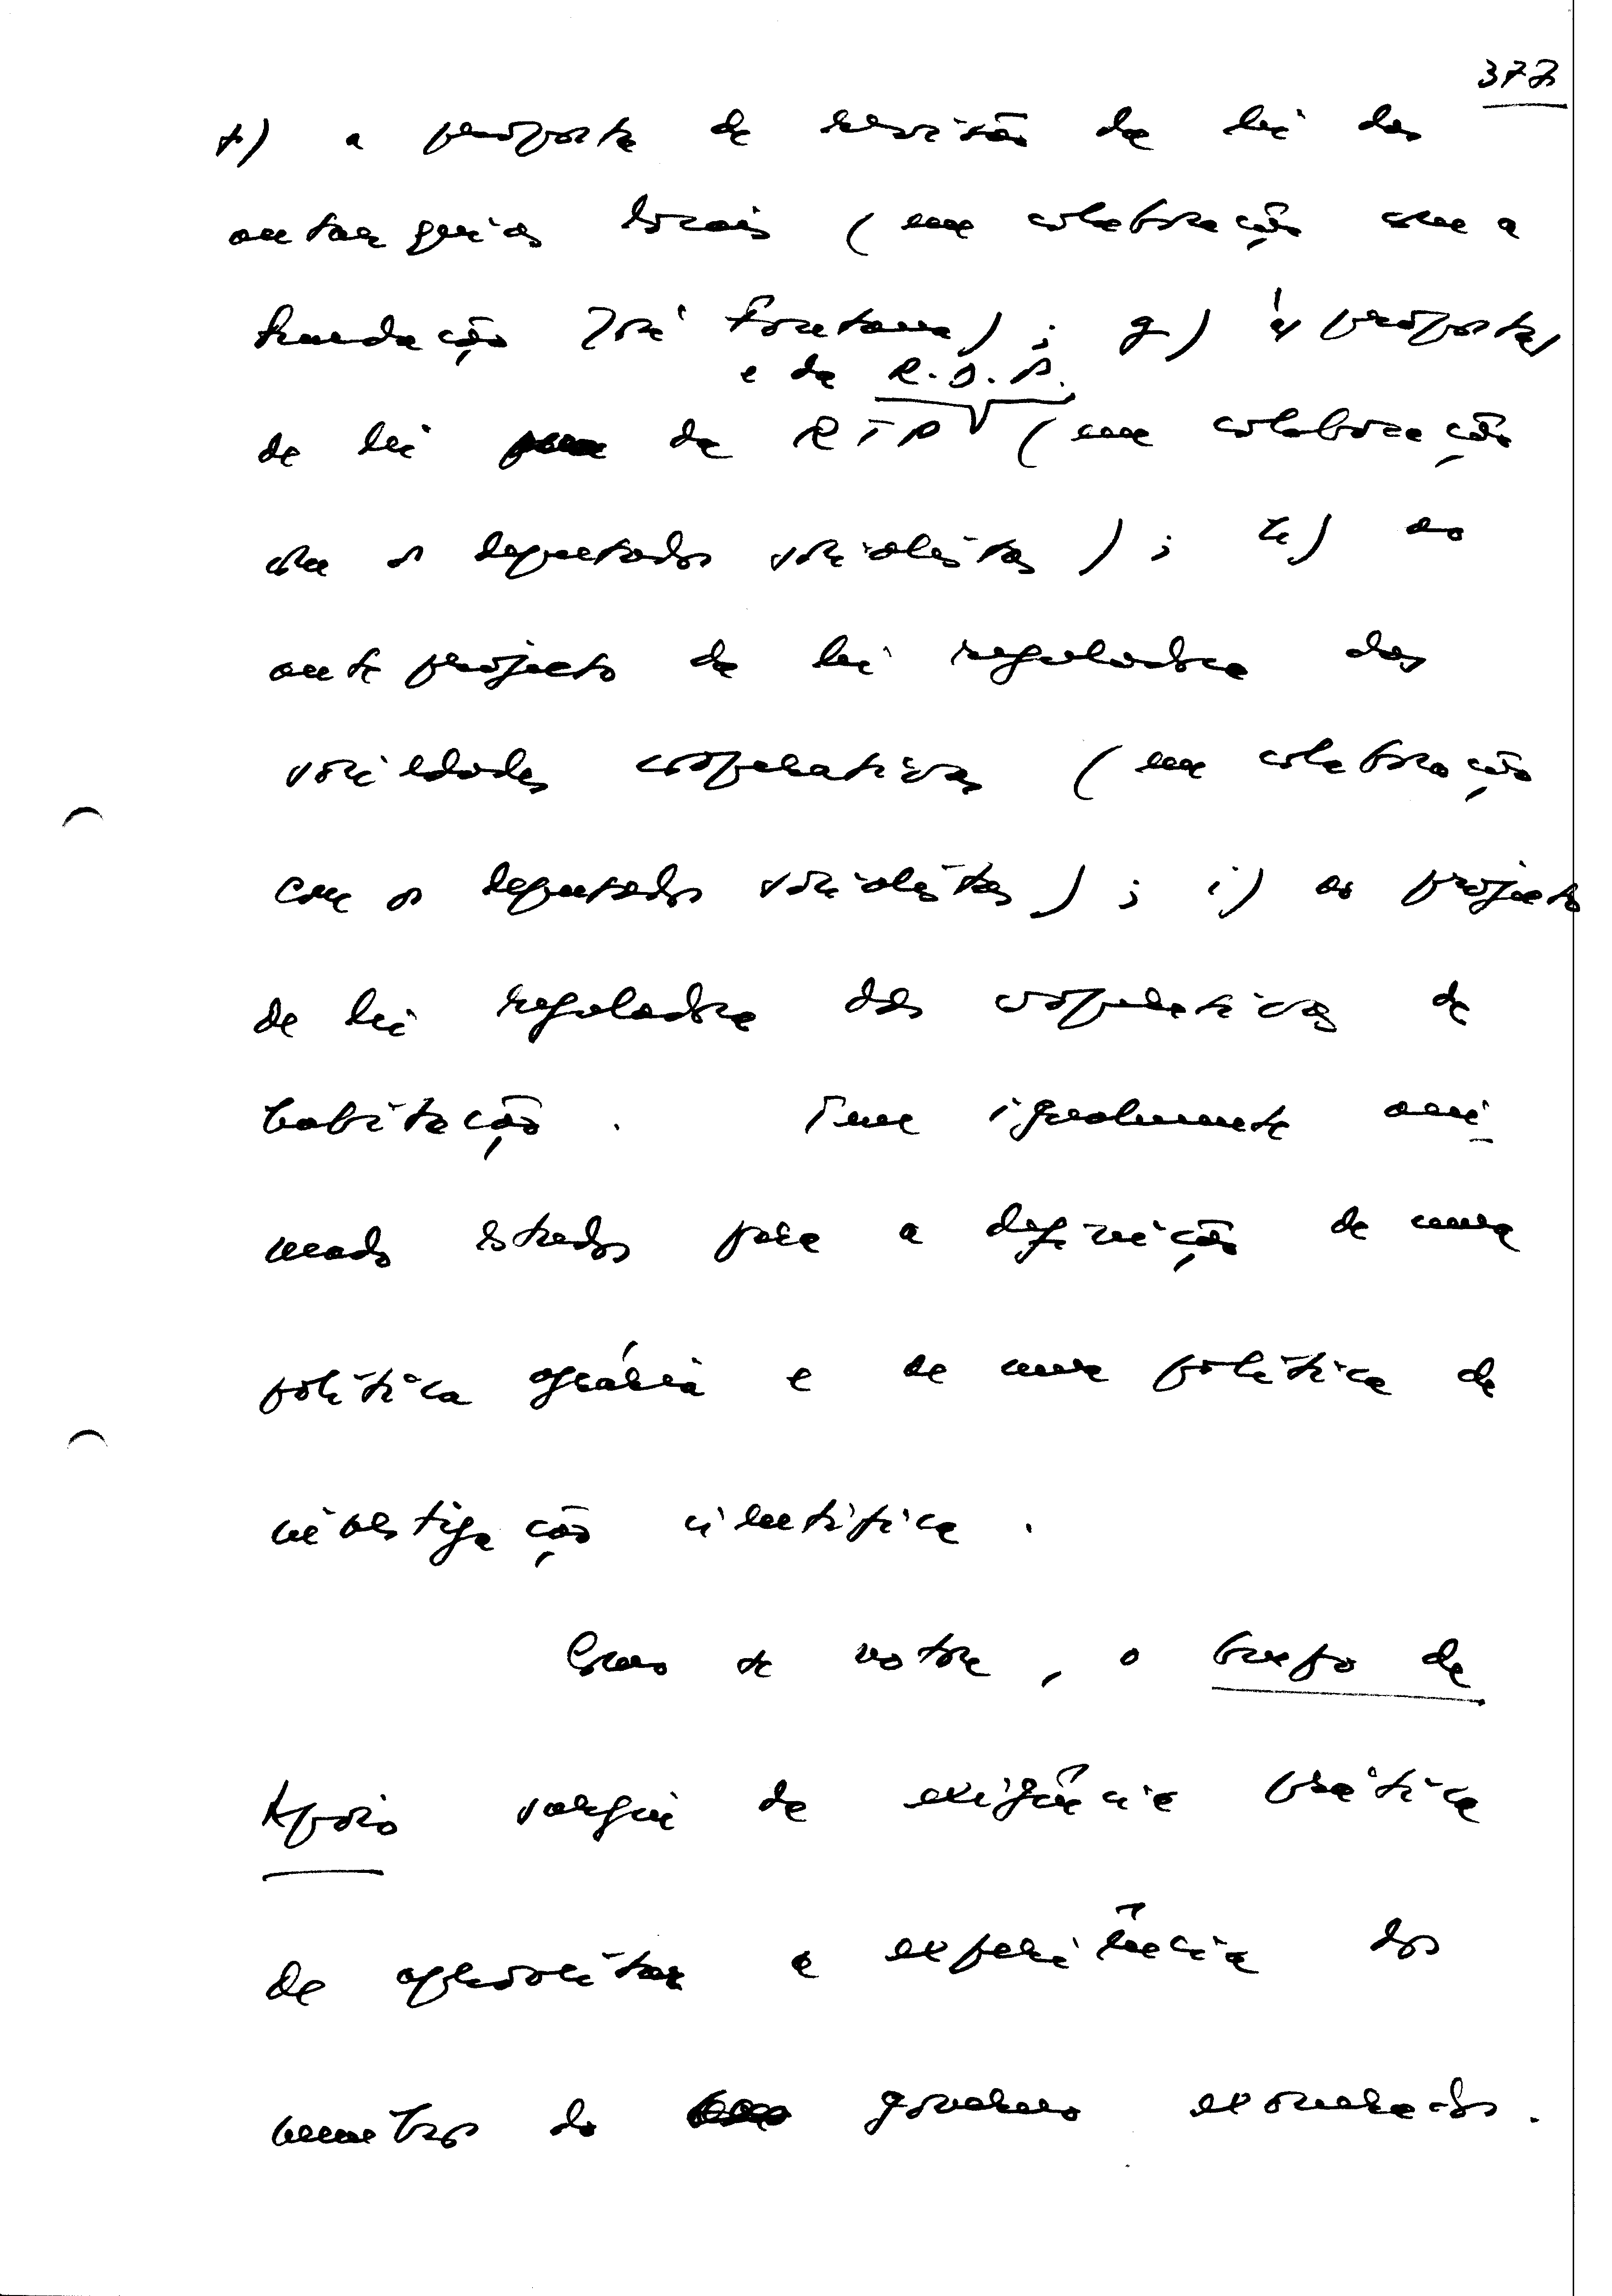 377
f) a proposta de revisão da lei das
autarquias locais (em colaboração com a
Fundação José Fontana); g) às propostas
e da R.D.P.
de lei da RTP (em colaboração
com os deputados socialistas); h) ao
ante projecto de lei reguladora das
sociedades cooperativas (em colaboração
com os deputados socialistas); i) ao projecto
de lei reguladora das cooperativas de
habitação. Tem igualmente ani-
mado estudos para a definição de uma
política agrária e de uma política de
investigação científica.
Como se nota, o Grupo de
Apoio surgiu da exigência prática
de aproveitar a experiência dos
membros do governo exonerado.